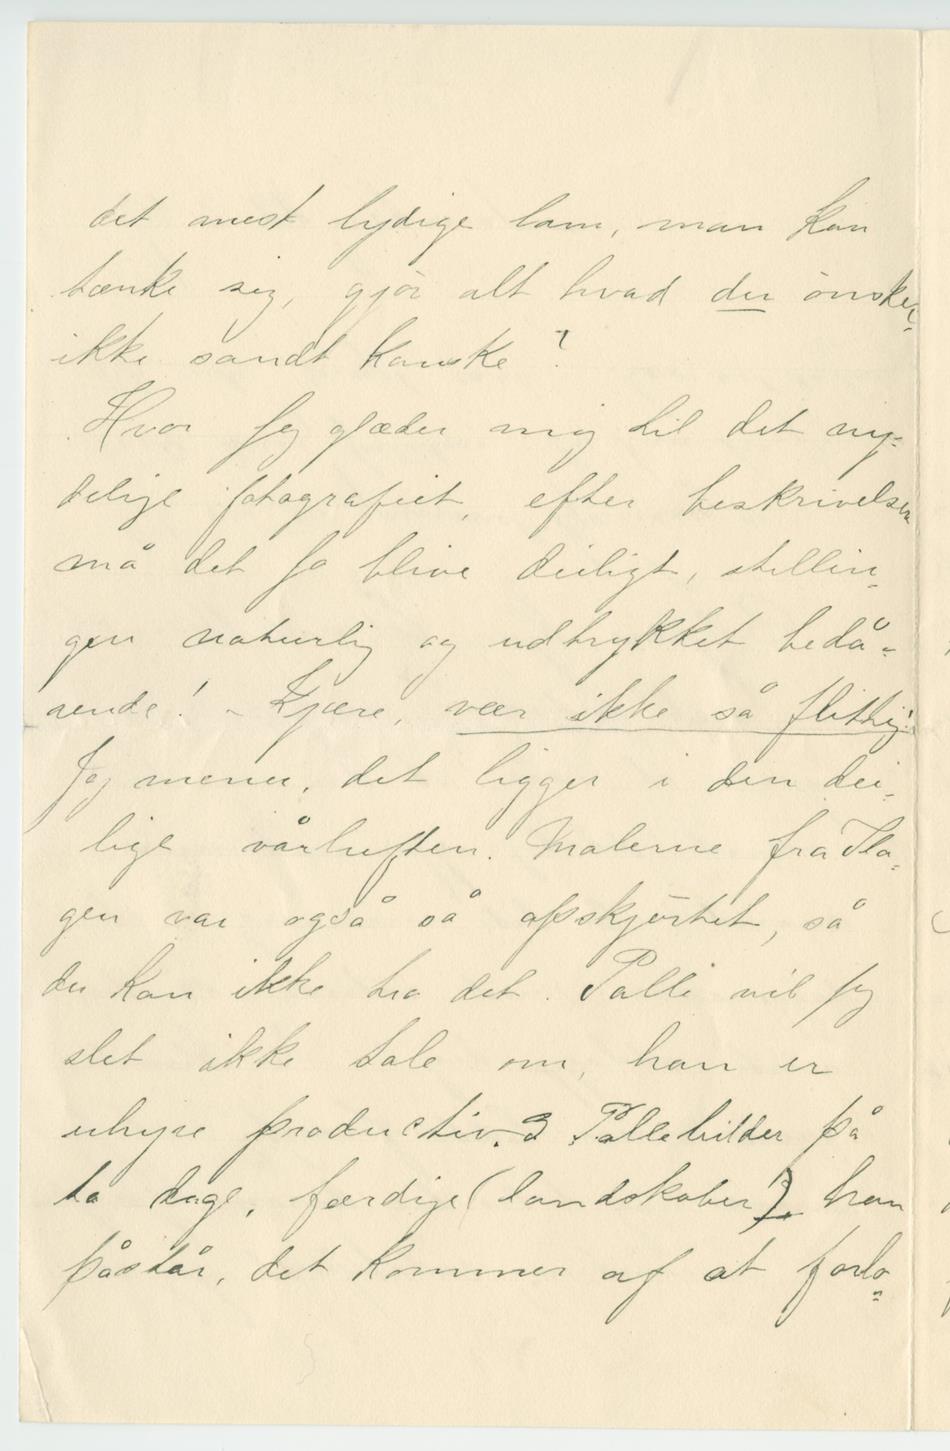 det mest lydige lam, man kan
tænke sig, gjör alt hvad du önsker,
ikke sandt kanske?
Hvor jeg glæder mig til det ny-
delige fotografiet, efter beskrivelsen
må det jo blive deiligt, stillin-
gen naturlig og udtrykket bedå-
rende! - Kjære, vær ikke så flittig!
Jeg mener, det ligger i den dei-
lige vårluften. Malerne fra Ska-
gen var også så opskjörtet, så
du kan ikke tro det. Palle vil jeg
slet ikke tale om, han er
uhyre productiv. 3 Pallebilder på
to dage, færdige (landskaber!). han
påstår, det kommer af at forlo-